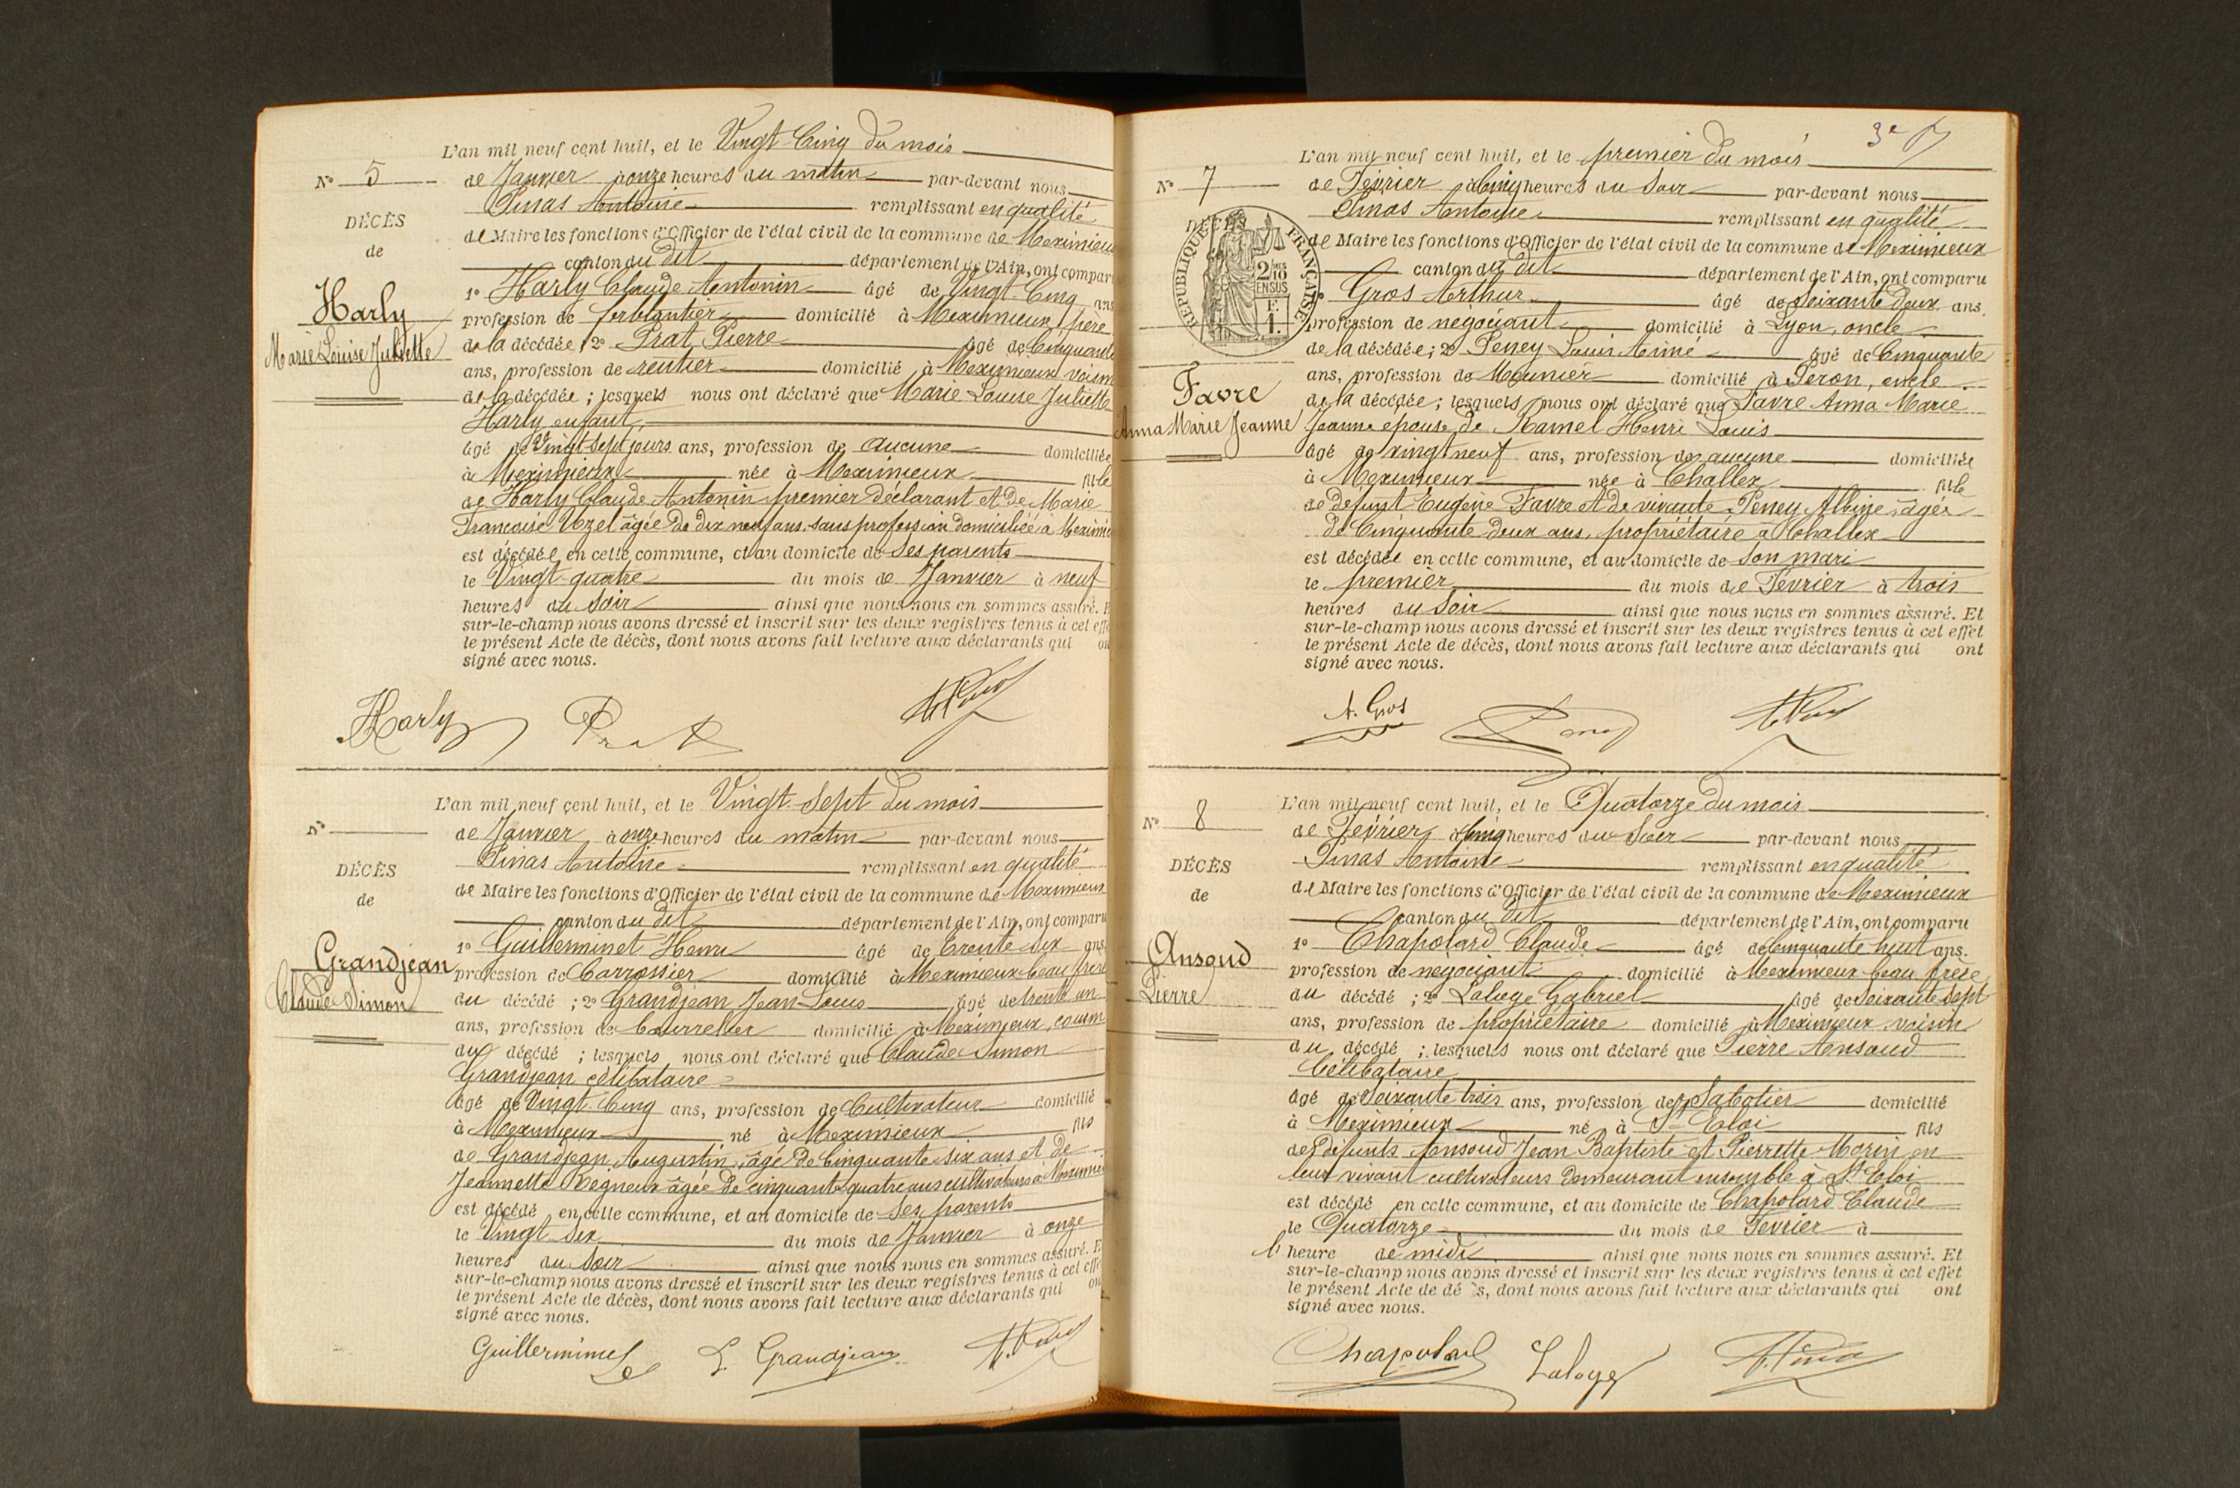 L'an mil neuf cent huit, et le Vingt-Cinq du mois
N° 5
de Janvier à onze heures du matin par-devant nous
Pinas Antoine remplissant en qualité
DÉCÈS
de Maire les fonctions d'Officier de l'état civil de la commune de Meximieux
de
canton du dit département de l'Ain, ont comparu
1° Harly Claude Antonin âgé de Vingt-Cinq ans
Harly
profession de ferblantier domicilié à Meximieux, père
Marie Louise Juliette
de la décédée; 2° Prat Pierre âgé de Cinquante
ans, profession de rentier domicilié à Meximieux voisin
de la décédée; lesquels nous ont déclaré que Marie Louise Juliette
Harly enfant,
âgé de Vingt-sept jours ans, profession de aucune domiciliée
à Meximieux née à Meximieux fille
de Harly Claude Antonin premier déclarant et de Marie
Françoise Vozel âgée de dix neuf ans sans profession domiciliée à Meximieux
est décédée en cette commune, et au domicile de Ses parents
le Vingt-quatre du mois de Janvier à neuf
heures du Soir ainsi que nous nous en sommes assuré. E
sur-le-champ nous avons dressé et inscrit sur les deux registres tenus à cet effe
le présent Acte de décès, dont nous avons fait lecture aux déclarants qui on
signé avec nous.
Harly Prat
L'an mil neuf cent huit, et le Vingt-Sept du mois
N°
de Janvier à onze heures du matin par-devant nous
Pinas Antoine remplissant en qualité
DÉCÈS
de Maire les fonctions d'Officier de l'état civil de la commune de Meximieux
de
canton du dit département de l'Ain, ont comparu
1° Guillerminet Henri âgé de trente six ans
Grandjean
profession de Carrossier domicilié à Meximieux beau frère
Claude Simon
du décédé; 2° Grandjean Jean Louis âgé de trente un
ans, profession de bourrelier domicilié à Meximieux, cousin
du décédé; lesquels nous ont déclaré que Claude Simon
Grandjean célibataire
âgé de Vingt-Cinq ans, profession de Cultivateur domicilié
à Meximieux né à Meximieux fils
de Grandjean Augustin, âgé de Cinquante six ans et de
Jeannette âgée de cinquante-quatre ans cultivateurs à Meximieux
est décédé en cette commune, et au domicile de Ses parents
le Vingt-Six du mois de Janvier à onze
heures du Soir ainsi que nous nous en sommes assuré. E
sur-le-champ nous avons dressé et inscrit sur les deux registres tenus à cet effe
le présent Acte de décès, dont nous avons fait lecture aux déclarants qui on
signé avec nous.
Guillerminet L. Grandjean
3e
L'an mil neuf cent huit, et le premier du mois
N° 7
de Février à Cinq heures du Soir par-devant nous
Pinas Antoine remplissant en qualité
DÉCÈS
de Maire les fonctions d'Officier de l'état civil de la commune de Meximieux
RÉPUBLIQUE FRANÇAISE
2/10 EN SUS
F. 1.
canton du dit département de l'Ain, ont comparu
Gros Arthur âgé de Soixante Deux ans
profession de négociant domicilié à Lyon, oncle
de la décédée; 2° Peney Louis Aimé âgé de Cinquante
ans, profession de Meunier domicilié à Péron, oncle
Favre
de la décédée; lesquels nous ont déclaré que Favre Anna Marie
Anna Marie Jeanne
Jeanne épouse de Hamel Henri Louis
âgé de vingt neuf ans, profession de aucune domiciliée
à Meximieux née à Challex fille
de défunt Eugène Favre et de vivante Peney Albine, âgée
de Cinquante deux ans, propriétaire à Challex
est décédée en cette commune, et au domicile de Son mari
le premier du mois de Février à trois
heures du Soir ainsi que nous nous en sommes assuré. Et
sur-le-champ nous avons dressé et inscrit sur les deux registres tenus à cet effet
le présent Acte de décès, dont nous avons fait lecture aux déclarants qui ont
signé avec nous.
A. Gros
L'an mil neuf cent huit, et le Quatorze du mois
N° 8
de Février à Cinq heures du Soir par-devant nous
Pinas Antoine remplissant en qualité
DÉCÈS
de Maire les fonctions d'Officier de l'état civil de la commune de Meximieux
de
canton du dit département de l'Ain, ont comparu
1° Chapolard Claude âgé de Cinquante huit ans.
Ansoud
profession de négociant domicilié à Meximieux beau frère
Pierre
du décédé; 2° Laloge Gabriel âgé de Soixante Sept
ans, profession de propriétaire domicilié à Meximieux voisin
du décédé; lesquels nous ont déclaré que Pierre Ansoud
Célibataire
âgé de Soixante trois ans, profession de Sabotier domicilié
à Meximieux né à St Eloi fils
de défunts Ansoud Jean Baptiste et Pierrette Morin en
leur vivant cultivateurs demeurant ensemble à St Eloi
est décédé en cette commune, et au domicile de Chapolard Claude
le Quatorze du mois de Février à
l' heure de midi ainsi que nous nous en sommes assuré. Et
sur-le-champ nous avons dressé et inscrit sur les deux registres tenus à cet effet
le présent Acte de dé s, dont nous avons fait lecture aux déclarants qui ont
signé avec nous.
Chapolard Laloge